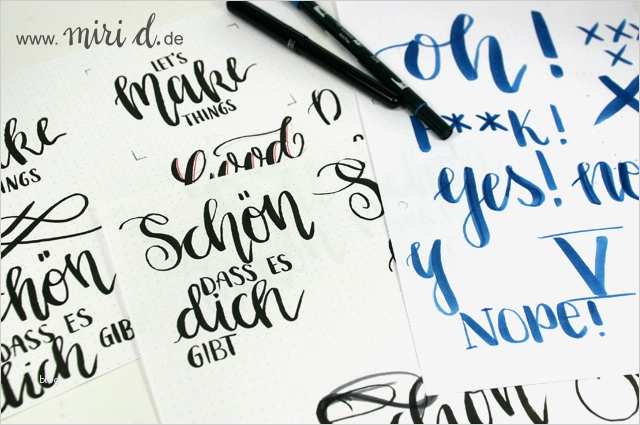 www. miri d.de
LET'S
make
THINGS
Good
Schön
DASS ES
dich
GIBT
ake
INGS
hön
DASS ES
ich GIBT
D
S
oh!
F**k!
yes! no
y V
NOPE!
Schön